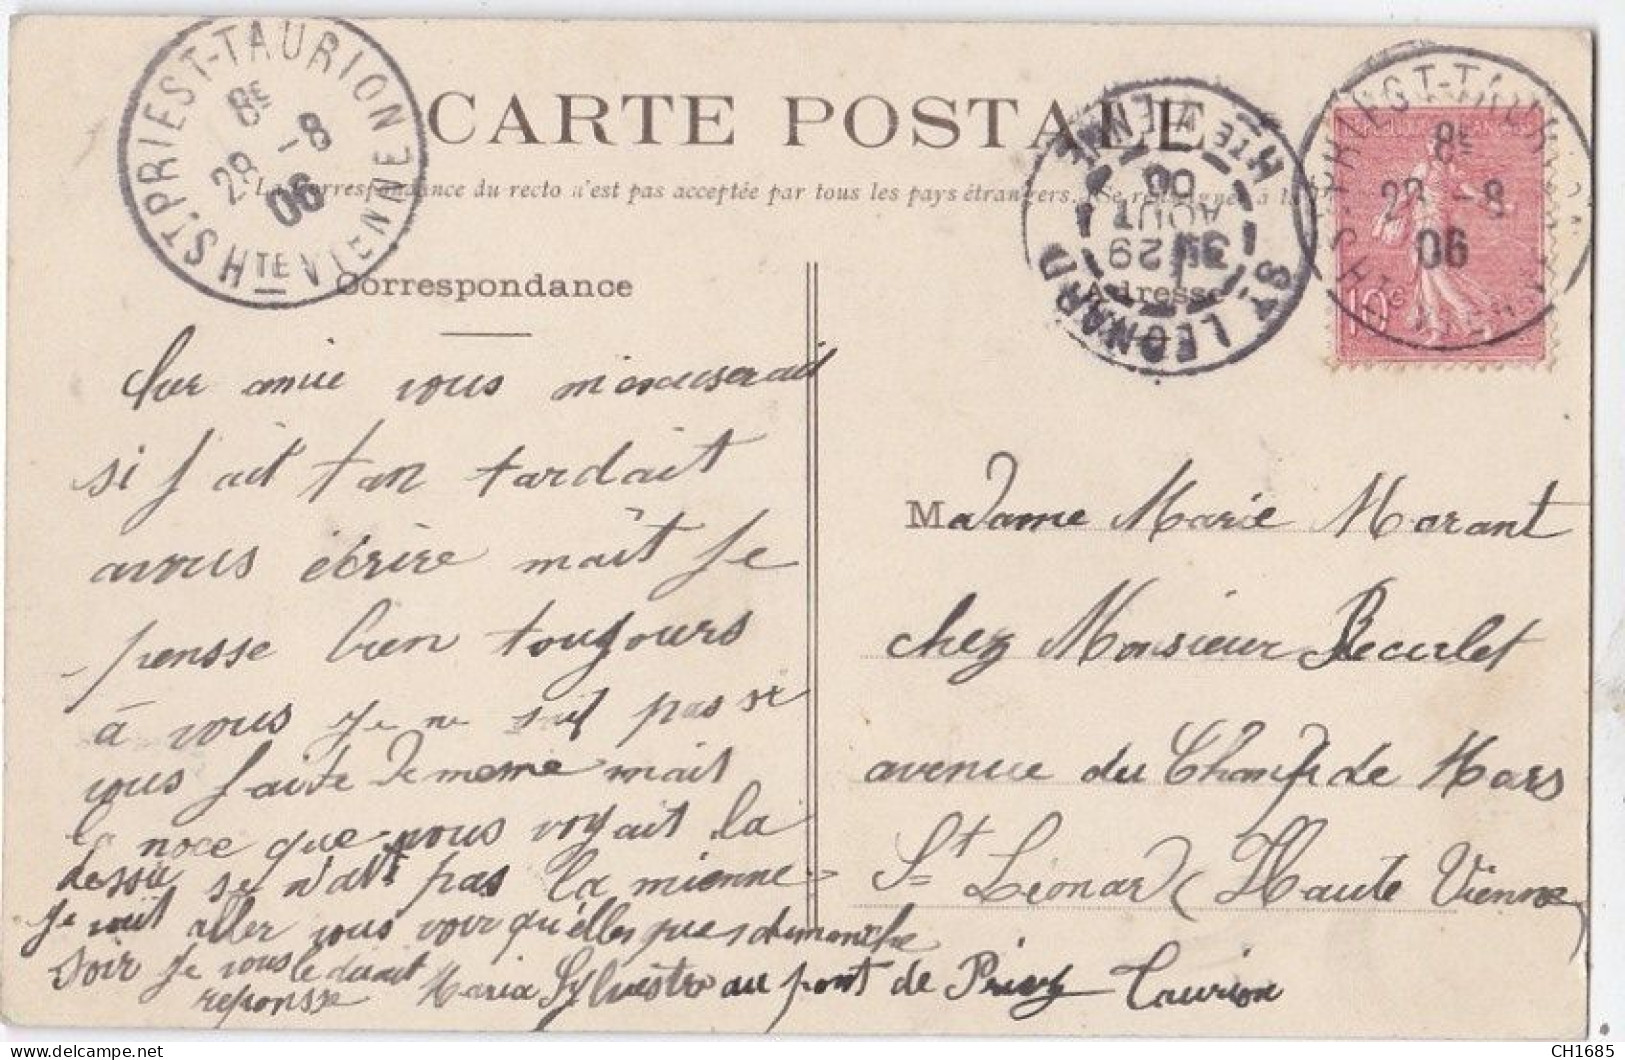 CARTE POSTALE
La Correspondance du recto n'est pas acceptée par tous les pays étrangers. (Se renseigner à la
Correspondance
Adresse
ST. PRIEST-TAURION
HTE VIENNE
8E
28 -8
06
ST LEONARD
HTE VIENNE
3E
29
AOUT
06
ST. PRIEST-TAURION
8E
28 -8
06
10c
amie vous m'excuserait
si j'ait tan tardait
avous ébrire mait je
pensse bien toujours
à vous je ne sait pas si
vous faite de meme mait
la noce que vous voyait la
dessu se n'ait pas la mienne
je vait aller vous voir qu'elles ques dimanche
soir je vous le dirait
reponsse
Maria Sylvestre au pont de Taurion
Madame Marie Morant
chez Monsieur Reculet
avenue du Champ de Mars
St Léonard (Haute Vienne)
CH1685